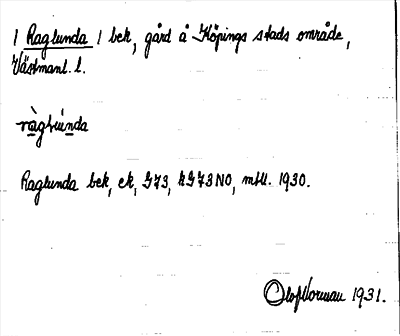 / Raglunda / bek, gård å Köpings stads område,
Västmanl. l.
Raglunda bek, ek, G73, kG73NO, mtll. 1930.
Olof Norman 1931.